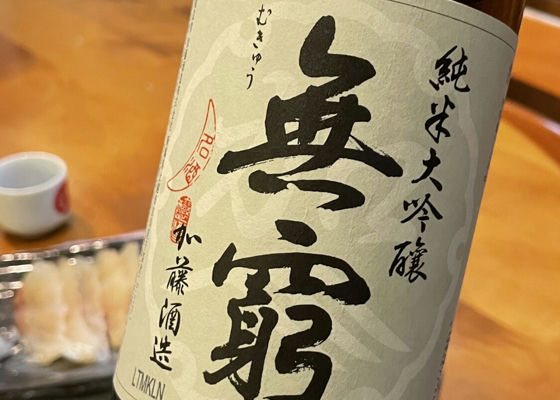 純米大吟醸
むきゅう
無窮
加藤酒造
LTMKLN